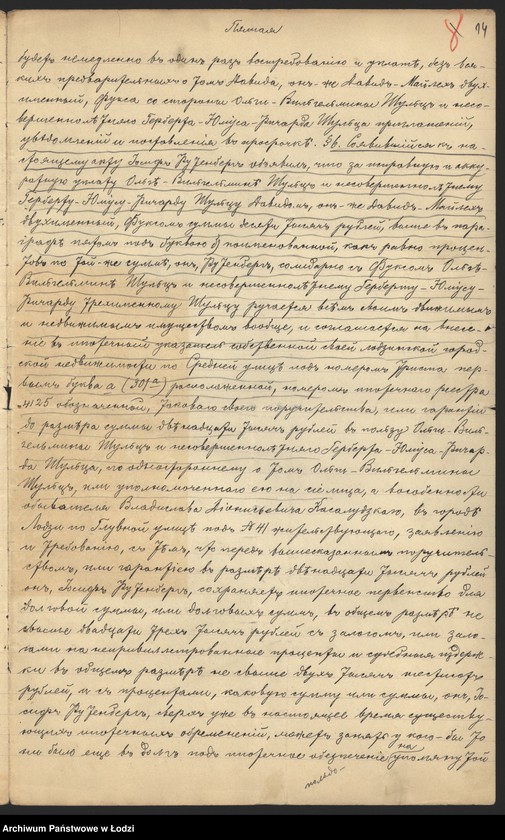 Пятая
8 14
будетъ немедленно въ одинъ разъ востребованію и уплатѣ, безъ вся-
кихъ предварительныхъ о томъ Давида, онъ-же Давидъ-Майлехъ двух-
именный, Фукса со стороны Ольги-Вильгельмины Шульцъ и несо-
вершеннолѣтняго Герберта-Юлiуса-Ричарда Шульца приглашеній,
увѣдомленій и поставленія въ просрочкѣ. Явившійся къ на-
стоящему акту Іосифъ Рутенбергъ объявилъ, что за исправную и акку-
ратную уплату Ольгѣ-Вильгельминѣ Шульцъ и несовершеннолѣтнему
Герберту-Юлiусу-Ричарду Шульцу Давидомъ, онъ-же Давидъ-Майлехъ
двухименный, Фуксомъ суммы десяти тысячъ рублей, выше въ пара-
графѣ пятомъ подъ буквою поименованной, какъ равно процен-
товъ по той-же суммѣ, онъ, Рутенбергъ, солидарно съ Фуксомъ Ольгѣ-
Вильгельминѣ Шульцъ и несовершеннолѣтнему Герберту-Юлiусу-
Ричарду трехименному Шульцу ручается всѣмъ своимъ движимымъ
и недвижимымъ имуществомъ вообще, и соглашается на внесе-
ніе въ ипотечный указатель собственной своей лодзинской город-
ской недвижимости по Средней улицѣ подъ номеромъ триста пер-
вымъ буква а (301а) расположенной, номеромъ ипотечнаго реестра
4125 обозначенной, таковаго своего поручительства, или гарантіи
до размѣра суммы двѣнадцати тысячъ рублей въ пользу Ольги-Виль-
гельмины Шульцъ и несовершеннолѣтняго Герберта-Юлiуса-Ричар-
да Шульца, по одностороннему о томъ Ольги-Вильгельмины
Шульцъ, или уполномоченнаго ею на сіе лица, а въ особенности
обывателя Владислава Діонисьевича въ городѣ
Лодзи по Главной улицѣ подъ №41 жительствующаго, заявленію
и требованію, съ тѣмъ, что передъ вышесказаннымъ поручитель-
ствомъ, или гарантіею въ размѣрѣ двѣнадцати тысячъ рублей
онъ, Іосифъ Рутенбергъ, сохраняетъ ипотечное первенство для
долговой суммы, или долговыхъ суммъ, въ общемъ размѣрѣ не
свыше двадцати трехъ тысячъ рублей съ залогомъ, или зало-
гами на непривиллегированные проценты и судебныя издерж-
ки въ общемъ размѣрѣ не свыше двухъ тысячъ
рублей, и съ процентами, каковую сумму или суммы, онъ, Іо-
сифъ Рутенбергъ, сверхъ уже въ настоящее время существу-
ющихъ ипотечныхъ обремененій, можетъ занять у кого-бы то
ни было еще въ долгъ подъ ипотечное обезпеченіе на упомянутой